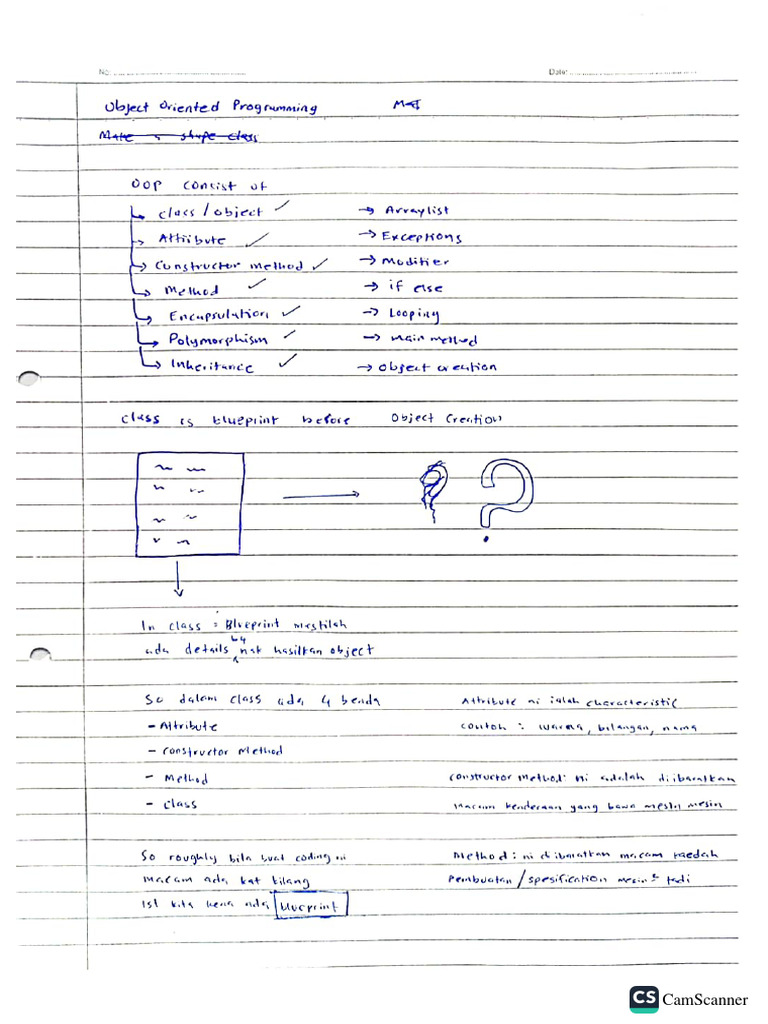 No: Date:
Object Oriented Programming
Make a shape class
OOP consist of
class / object ✓ → Arraylist
Attribute ✓ → Exceptions
→ Constructor method ✓ → Modifier
Method ✓ → if else
Encapsulation ✓ → Looping
Polymorphism ✓ → main method
Inheritance ✓ → object creation
Class is blueprint before Object Creation
?
In class : Blueprint mestilah
ada details by nak hasilkan object
So dalam class ada 4 benda
- Attribute
- constructor Method
- Method
- class
Attribute ni ialah characteristic
contoh : warna, bilangan, nama
constructor method: ni adalah diibaratkan
macam kenderaan yang bawa mesin mesin
Method : ni diibaratkan macam kaedah
Pembuatan / spesification mesin² tadi
So roughly bila buat coding ni
macam ada kat kilang
1st kita kena ada blueprint
CS CamScanner